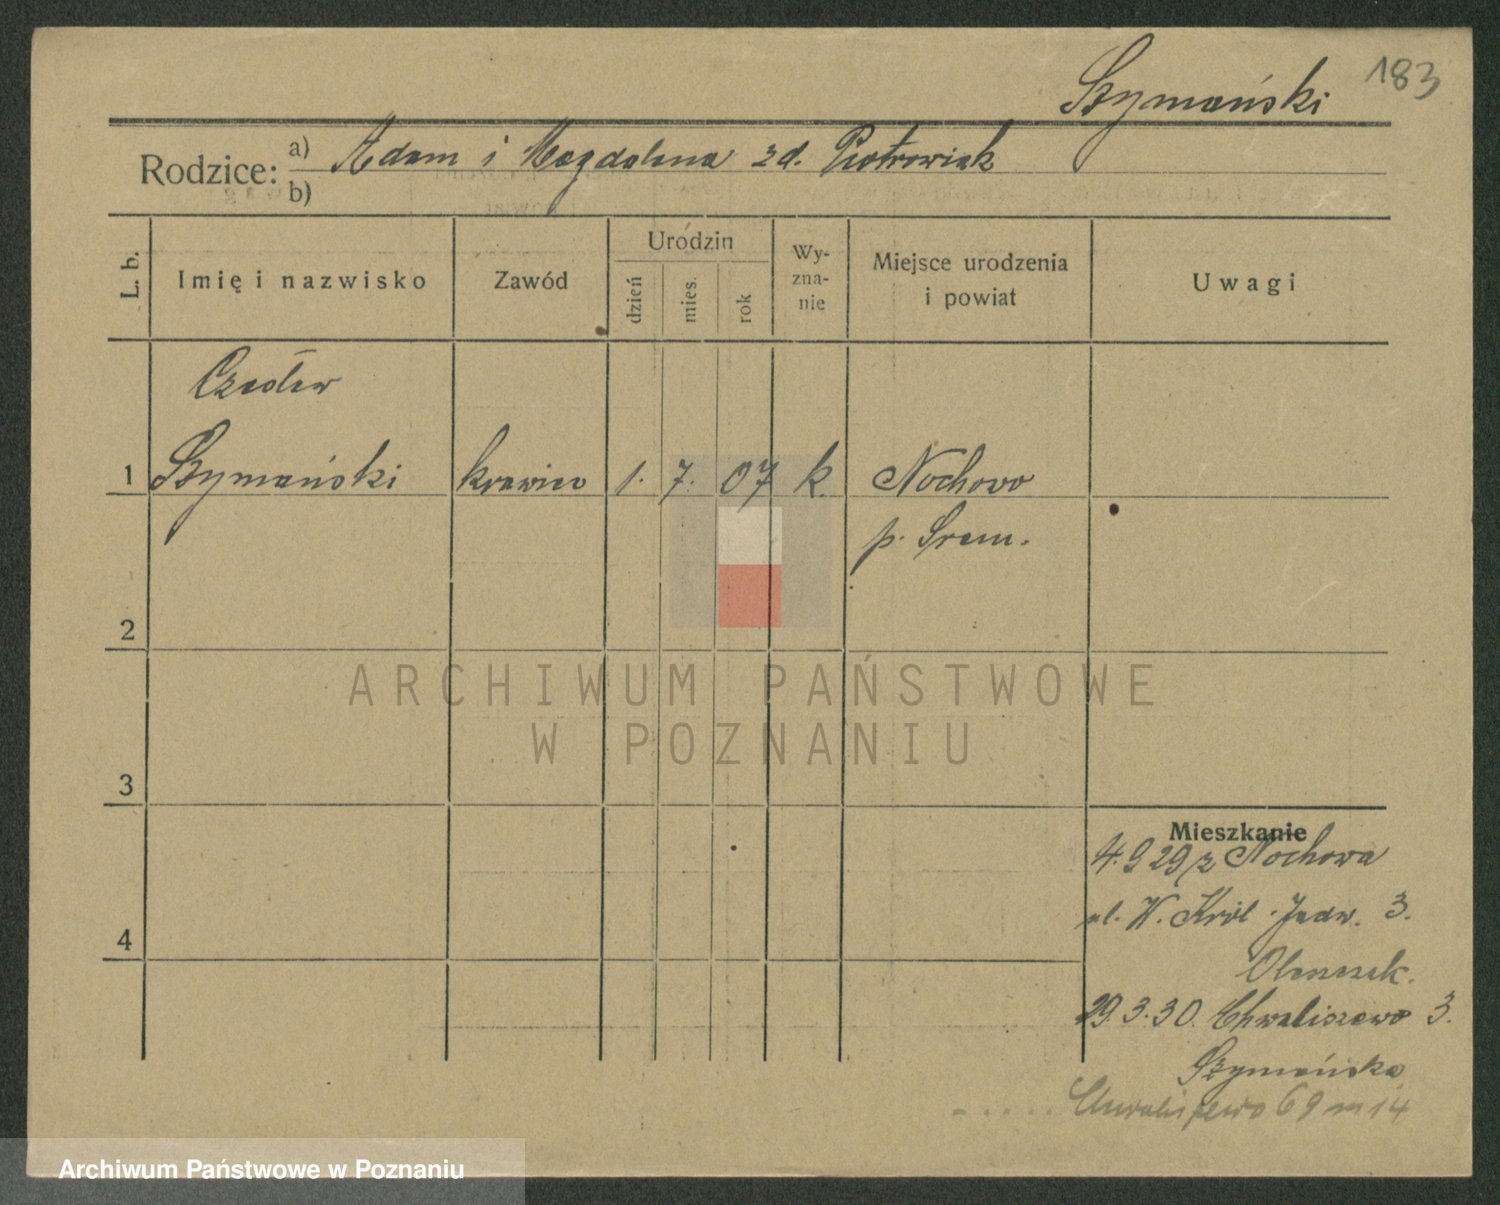 Szymański 183
Rodzice: a) Adam i Magdalena zd. Piotrowiak
b)
L. b. Imię i nazwisko Zawód Urodzin dzień mies. rok Wy-zna-nie Miejsce urodzenia i powiat Uwagi
Czesław
1 Szymański krawiec 1. 7. 07 k. Nochowo
p. Śrem.
2
ARCHIWUM PAŃSTWOWE
W POZNANIU
3
Mieszkanie
4.9 29 z Nochowa
ul. W. Król. Jadw. 3.
4
29.3.30. Chwaliszewo 3.
Szymańska
Chwaliszewo 69 m 14
Archiwum Państwowe w Poznaniu